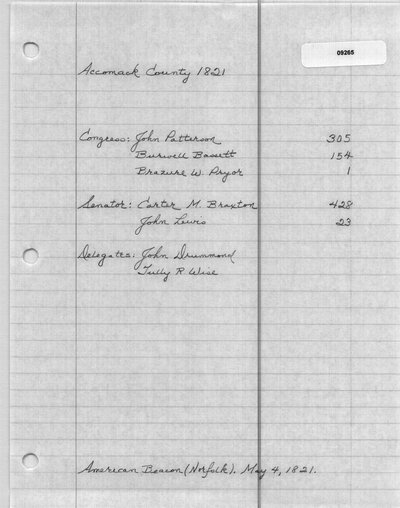 09265
Accomack County 1821
Congress: John Patterson 305
Burwell Bassett 154
Brazure W. Pryor 1
Senator: Carter M. Braxton 428
John Lewis 23
Delegates: John Drummond
Tully R Wise
American Beacon (Norfolk). May 4, 1821.